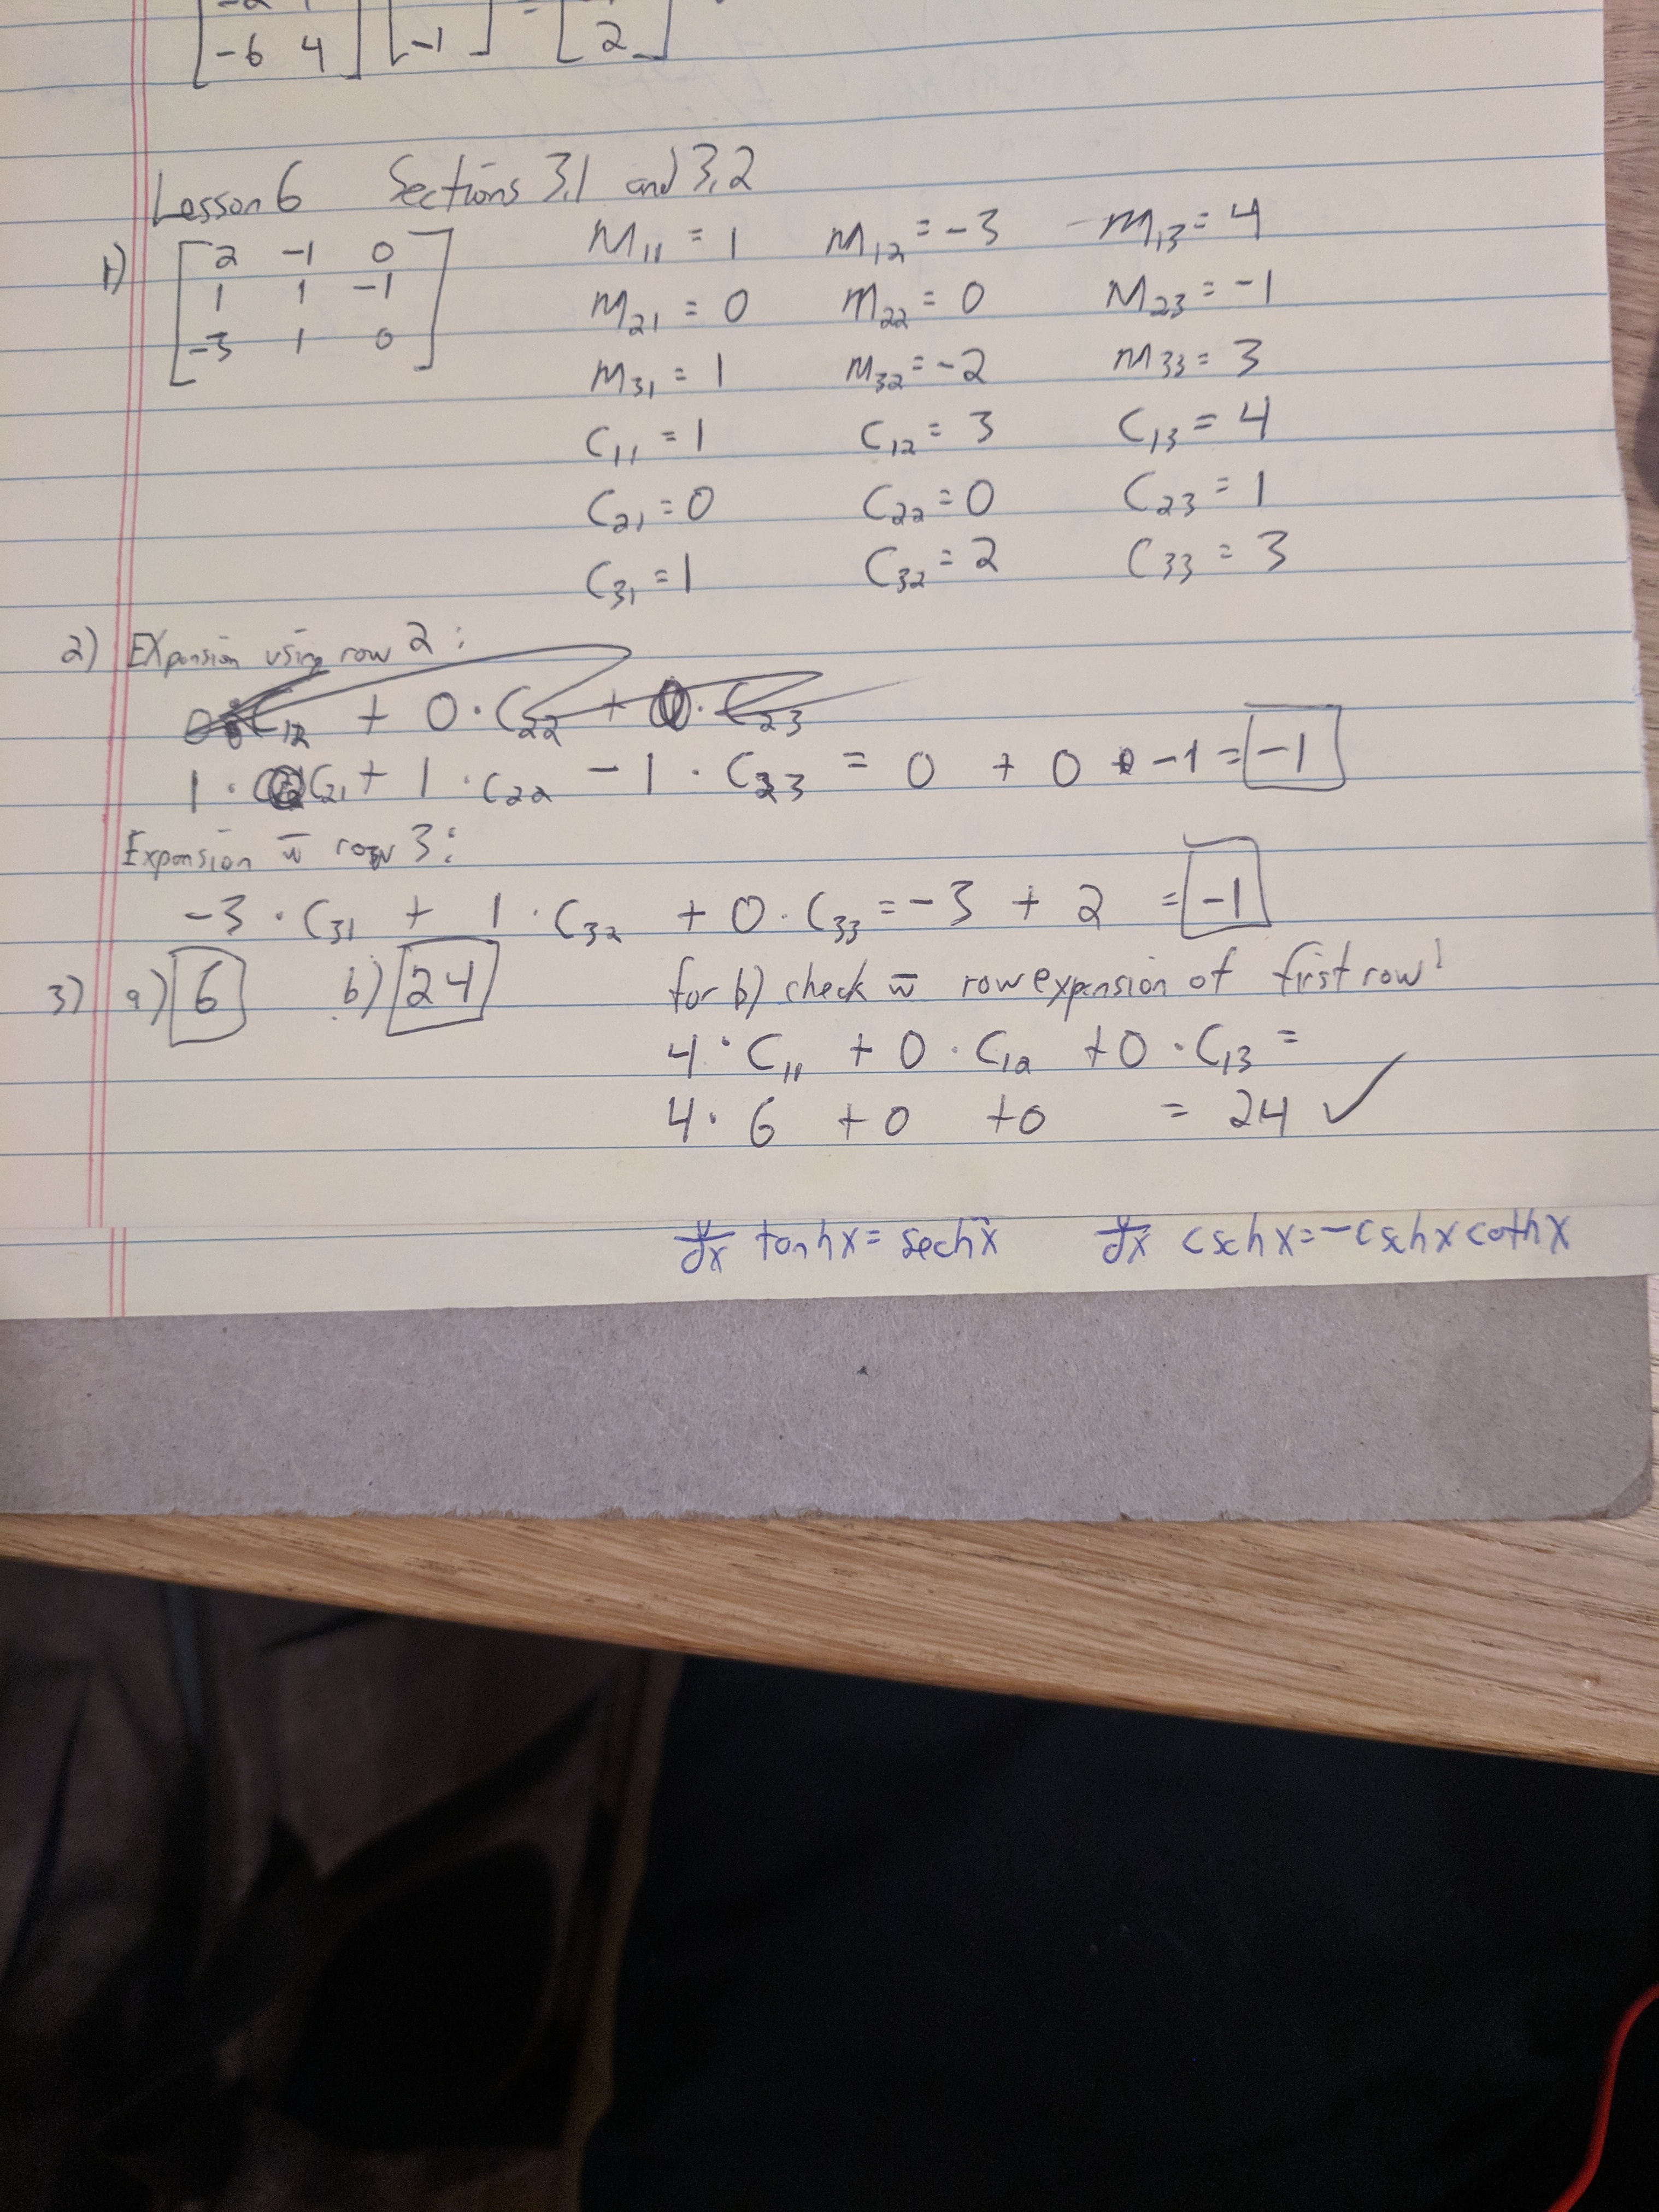 -6 4 -1 = 2
Lesson 6 Sections 3.1 and 3.2
1) 2 -1 0 M11 = 1 M12 = -3 M13 = 4
1 1 -1 M21 = 0 M22 = 0 M23 = -1
-3 1 0 M31 = 1 M32 = -2 M33 = 3
C11 = 1 C12 = 3 C13 = 4
C21 = 0 C22 = 0 C23 = 1
C31 = 1 C32 = 2 C33 = 3
2) Expansion using row 2:
C12 + 0 · C22 + · C23
1 · C21 + 1 · C22 - 1 · C23 = 0 + 0 -1 = -1
Expansion w̄ row 3:
-3 · C31 + 1 · C32 + 0 · C33 = -3 + 2 = -1
3) a) 6 b) 24 for b) check w̄ row expansion of first row!
4 · C11 + 0 · C12 + 0 · C13 =
4 · 6 + 0 + 0 = 24 ✓
dx tanhx = sech x dx cschx = -cschx cothx